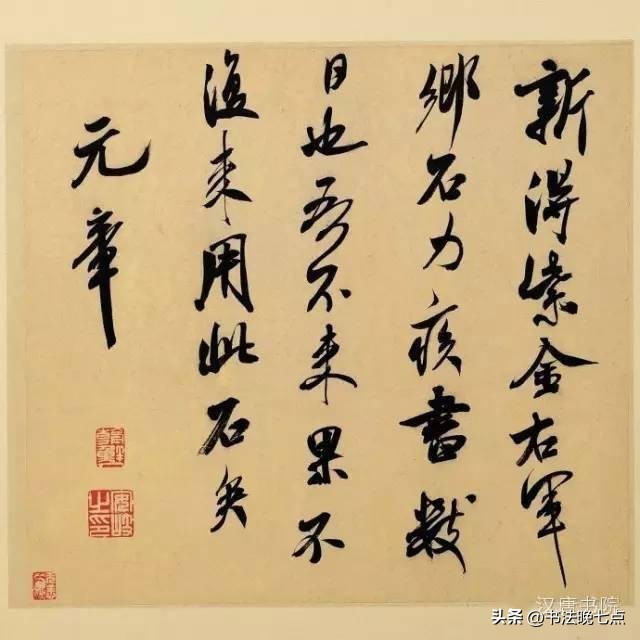 新得紫金右軍
鄉石力疾書數
日也吾不来果不
復来用此石矣
元章
汉唐书院
头条 @书法晚七点